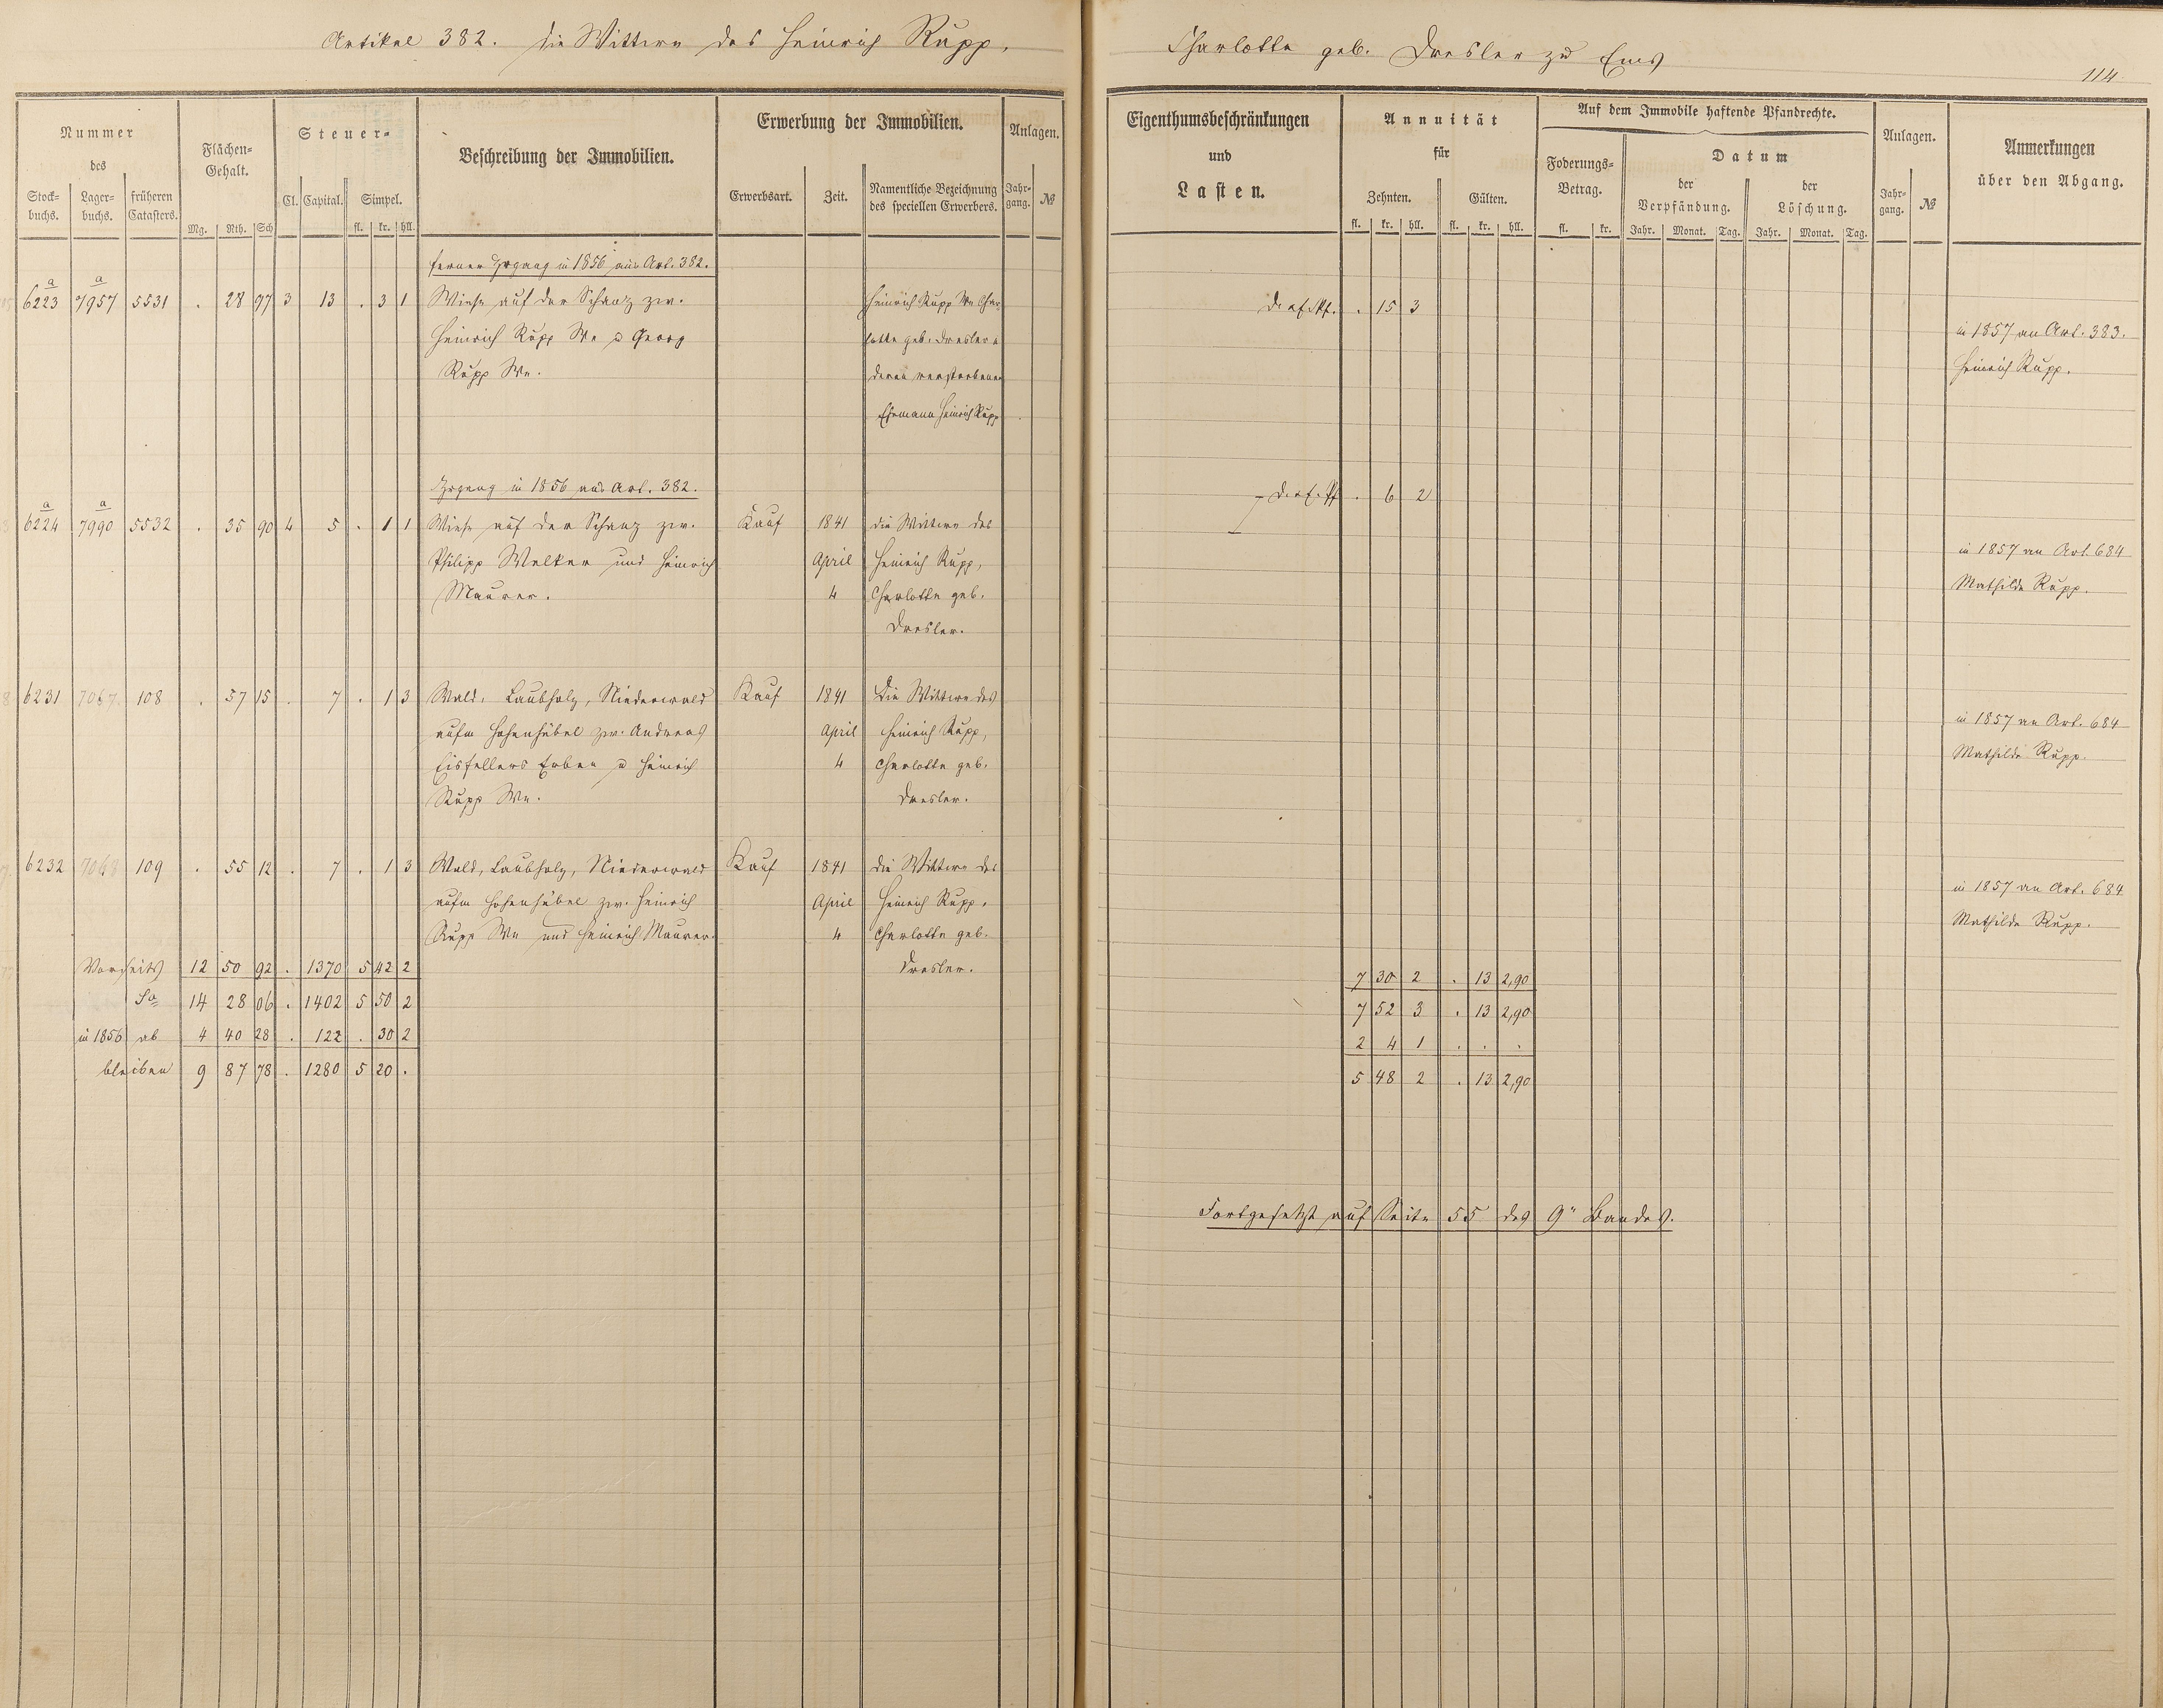 Artikel 382. die Wittwe des Heinrich Rupp,
Charlotte geb. Dresler zu Ems
114
Nummer
des
Stock-
buchs.
Lager-
buchs.
früheren
Catasters.
Flächen-
Gehalt.
Mg. Rth. Sch
Steuer-
Cl. Capital. Simpel.
fl. kr. hll.
Beschreibung der Immobilien.
Erwerbung der Immobilien.
Erwerbsart. Zeit.
Namentliche Bezeichnung
des speciellen Erwerbers.
Anlagen.
Jahr-
gang. №
Eigenthumsbeschränkungen
und
Lasten.
Annuität
für
Zehnten. Gülten.
fl. kr. hll. fl. kr. hll.
Auf dem Immobile haftende Pfandrechte.
Foderungs-
Betrag.
fl. kr.
Datum
der
Verpfändung.
Jahr. Monat. Tag.
der
Löschung.
Jahr. Monat. Tag.
Anlagen.
Jahr-
gang. №
Anmerkungen
über den Abgang.
ferner Zugang in 1856 aus Art. 382.
a a
6223 7957 5531 . 28 97 3 13 . 3 1 Wiese auf der Schanz zw. Heinrich Rupp We Char- . 15 3
Heinrich Rupp We u Georg lotte geb. Dresler u in 1857 an Art. 383.
Rupp We. deren verstorbener Heinrich Rupp.
Ehemann Heinrich Rupp
Zugang in 1856 aus Art. 382. . 6 2
a a
6224 7990 5532 . 35 90 4 5 . 1 1 Wiese auf der Schanz zw. Kauf 1841 die Wittwe des
Philipp Welker und Heinrich April Heinrich Rupp, in 1857 an Art. 684
Maurer. 4 Charlotte geb. Mathilde Rupp.
Dresler.
6231 7067 108 . 57 15 . 7 . 1 3 Wald, Laubholz, Niederwald Kauf 1841 Die Wittwe des
aufm Hohenhübel zw. Andreas April Heinrich Rupp, in 1857 an Art. 684
Eisfellers Erben u Heinrich 4 Charlotte geb. Mathilde Rupp.
Rupp We. Dresler.
6232 7068 109 . 55 12 . 7 . 1 3 Wald, Laubholz, Niederwald Kauf 1841 die Wittwe des
aufm Hohenhübel zw. Heinrich April Heinrich Rupp, in 1857 an Art. 684
Rupp We und Heinrich Maurer. 4 Charlotte geb. Mathilde Rupp.
Vorseits 12 50 92 . 1370 5 42 2 Dresler. 7 30 2 . 13 2,90
Sa 14 28 06 . 1402 5 50 2 7 52 3 . 13 2,90
in 1856 ab 4 40 28 . 122 . 30 2 2 4 1 . . .
bleiben 9 87 78 . 1280 5 20 . 5 48 2 . 13 2,90
Fortgesetzt auf Seite 55 des 9" Bandes.